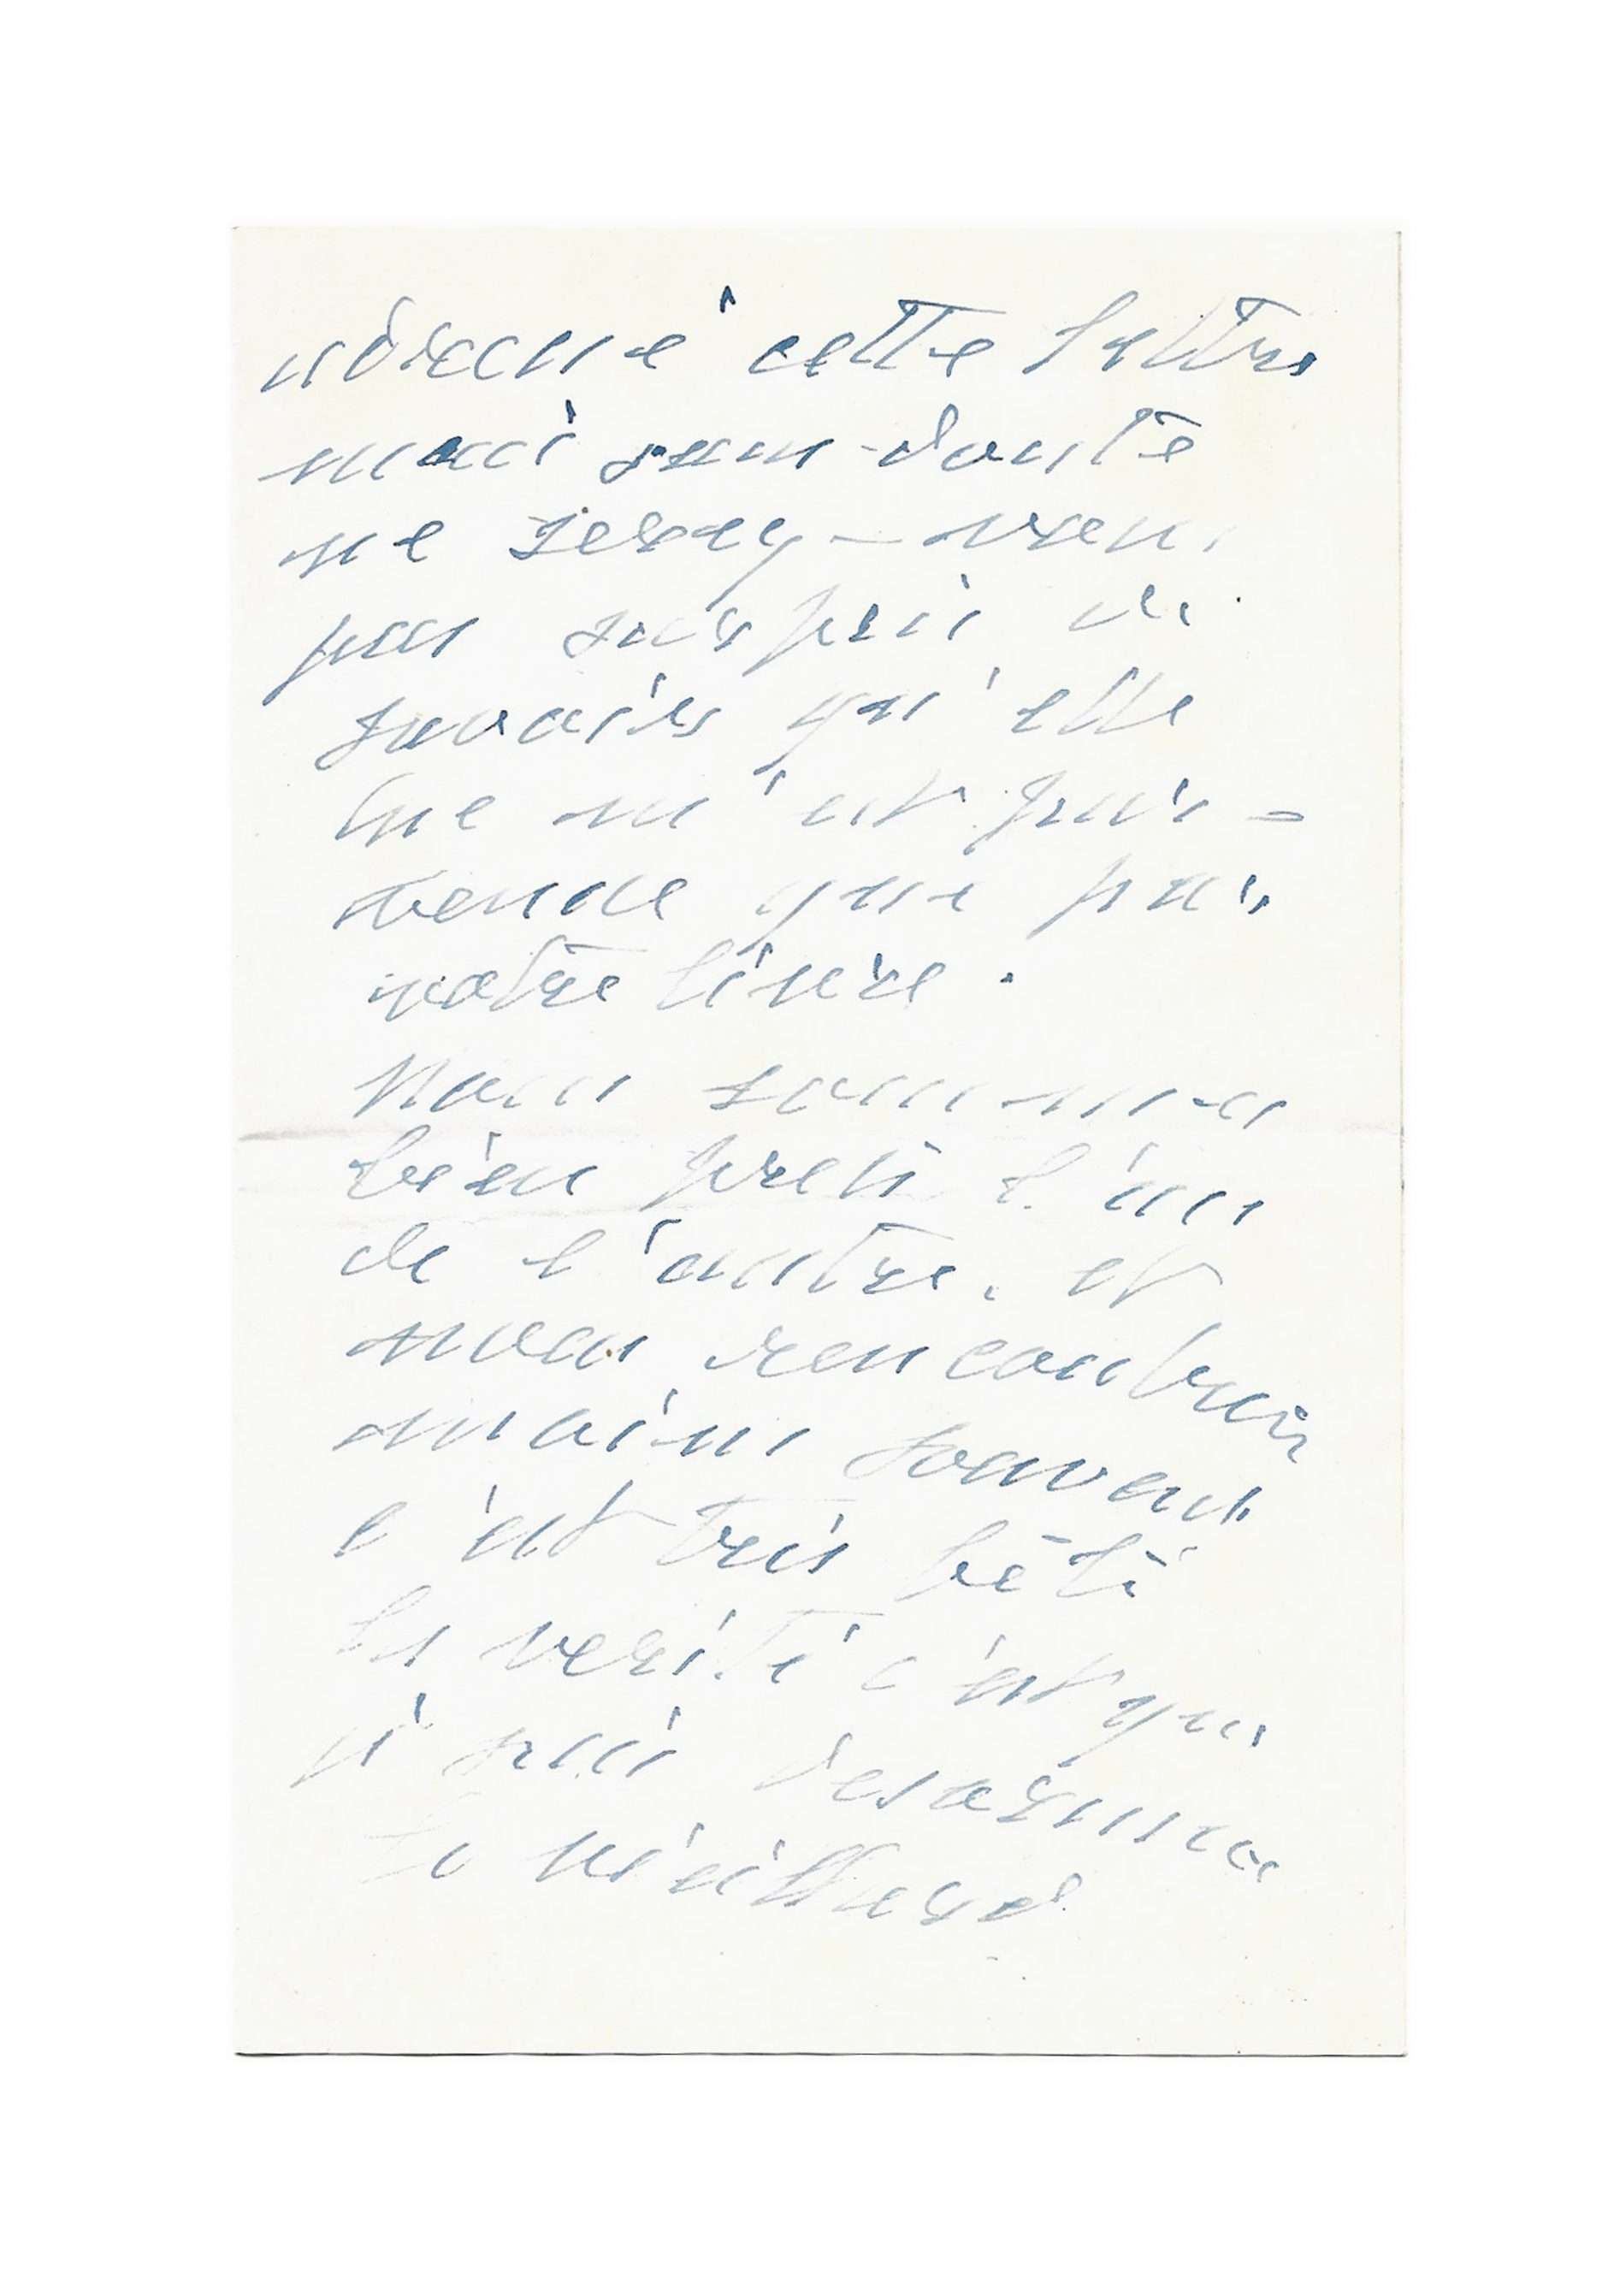 adressé cette lettre
mais sans doute
ne serez-vous
pas surpris de
savoir qu'elle
ne m'est par-
venue que par
notre livre.
Nous sommes
bien près l'un
de l'autre, et
nous rencontrer
moins souvent
c'est très bête
la vérité c'est que
je suis désormais
le vieillard